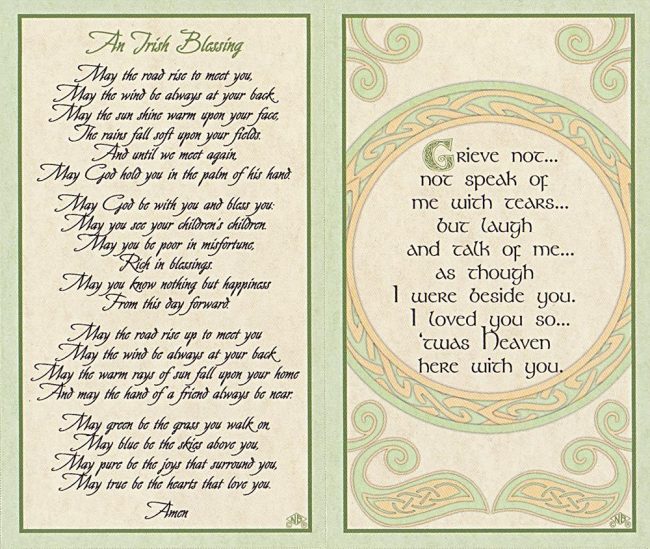 An Irish Blessing
May the road rise to meet you,
May the wind be always at your back
May the sun shine warm upon your face,
The rains fall soft upon your fields.
And until we meet again
May God hold you in the palm of his hand.
May God be with you and bless you:
May you see your children's children.
May you be poor in misfortune,
Rich in blessings.
May you know nothing but happiness
From this day forward.
May the road rise up to meet you
May the wind be always at your back
May the warm rays of sun fall upon your home
And may the hand of a friend always be near.
May green be the grass you walk on
May blue be the skies above you,
May pure be the joys that surround you,
May true be the hearts that love you.
Amen
Grieve not...
not speak of
me with tears...
but laugh
and talk of me...
as though
I were beside you.
I loved you so...
'twas Heaven
here with you.